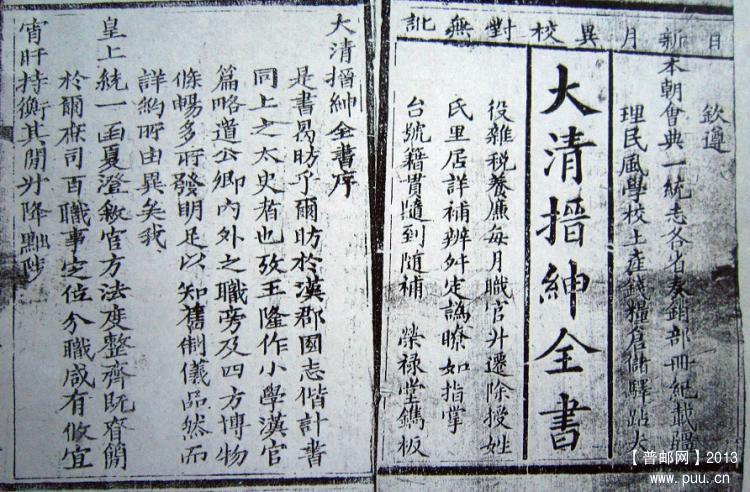 日新月異校對無訛
欽遵
本朝會典一統志各省奏銷部冊紀載疆
理民風學校土產錢糧倉儲驛站夫
大清搢紳全書
役雜稅養廉每月職官升遷除授姓
氏里居詳補辨舛定譌瞭如指掌
台號籍貫隨到隨補 榮祿堂鐫板
大清搢紳全書序
是書曷昉乎爾昉於漢郡國志偕計書
同上之太史者也攷王隆作小學漢官
篇略道公卿內外之職旁及四方博物
條暢多所發明足以知舊制儀品然而
詳約所由異矣我
皇上統一函夏澄敘官方法度整齊既齊開
於爾庶司百職事定位分職咸有攸宜
宵旰持衡其開升降黜陟
【普邮网】2013
www.puu.cn